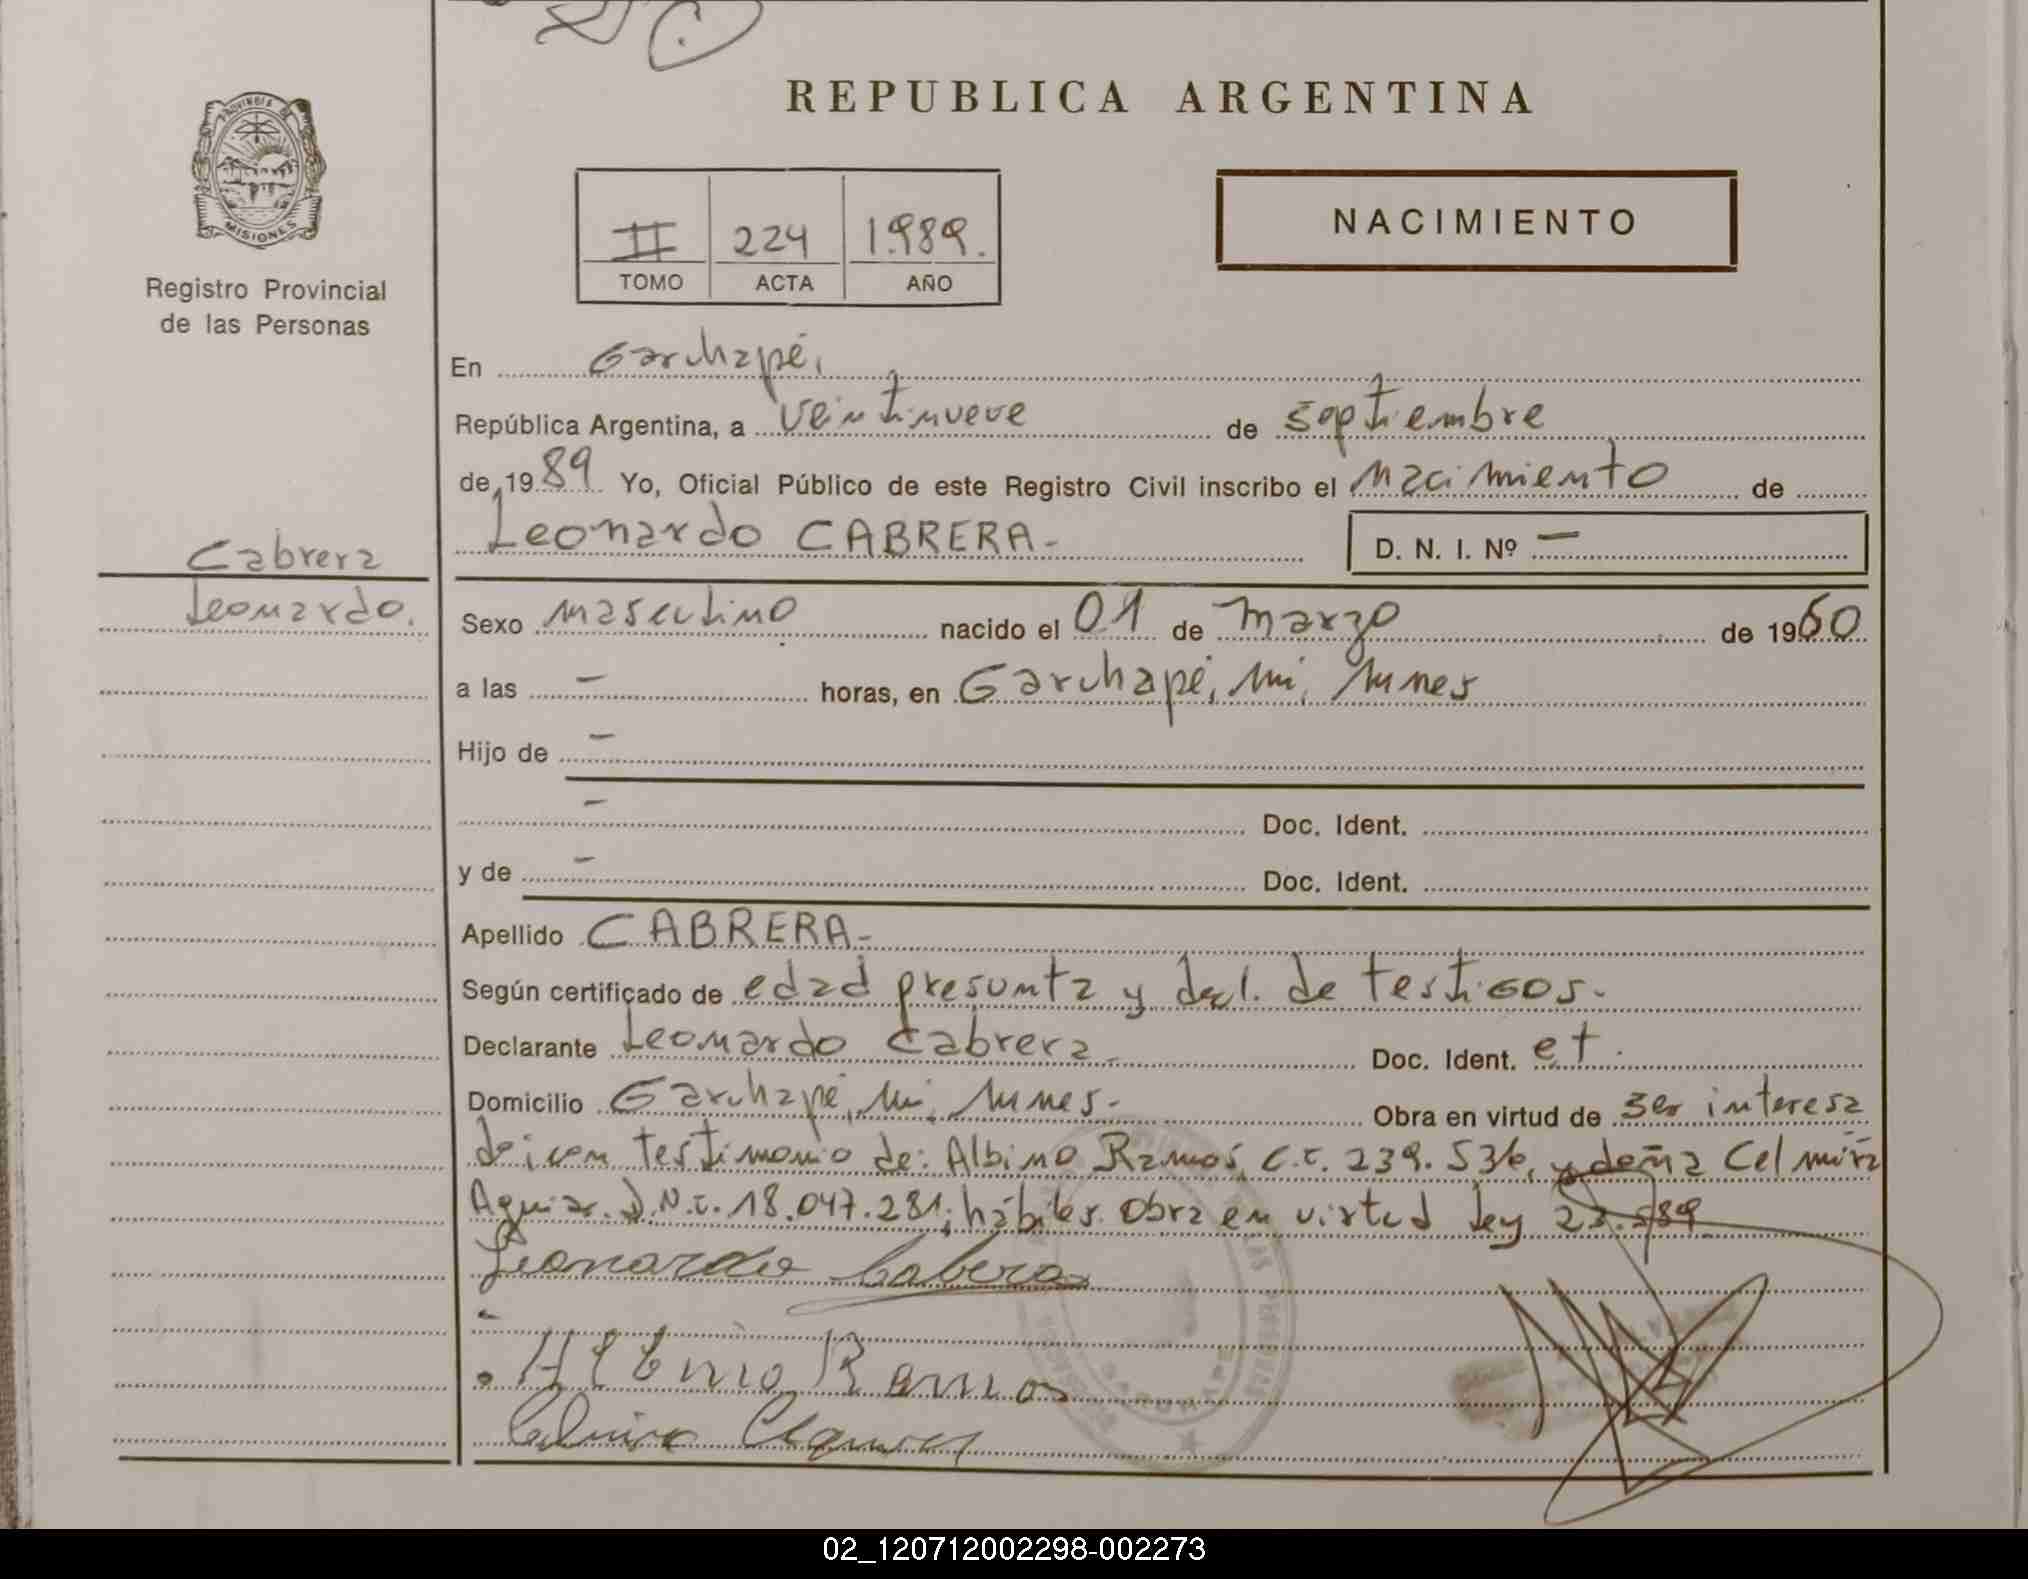 REPUBLICA ARGENTINA
PROVINCIA DE
MISIONES
Registro Provincial
de las Personas
II 224 1.989.
TOMO ACTA AÑO
NACIMIENTO
En Garuhapé,
República Argentina, a veintinueve de septiembre
de 1989 Yo, Oficial Público de este Registro Civil inscribo el nacimiento de
Leonardo CABRERA- D. N. I. Nº —
Cabrera
Leonardo.
Sexo masculino nacido el 01 de marzo de 1960
a las — horas, en Garuhapé, Mi,
Hijo de —
— Doc. Ident.
y de — Doc. Ident.
Apellido CABRERA-
Según certificado de edad presunta y decl. de testigos.
Declarante Leonardo Cabrera Doc. Ident. et.
Domicilio Garuhapé, Mi, Obra en virtud de ser interesa
do; con testimonio de: Albino Ramos, C.I. 239.536, y doña Celmira
Aguiar. D.N.I. 18.047.281; hábiles. Obra en virtud ley
Leonardo Cabrera
Albino Ramos
Celmira
02_120712002298-002273